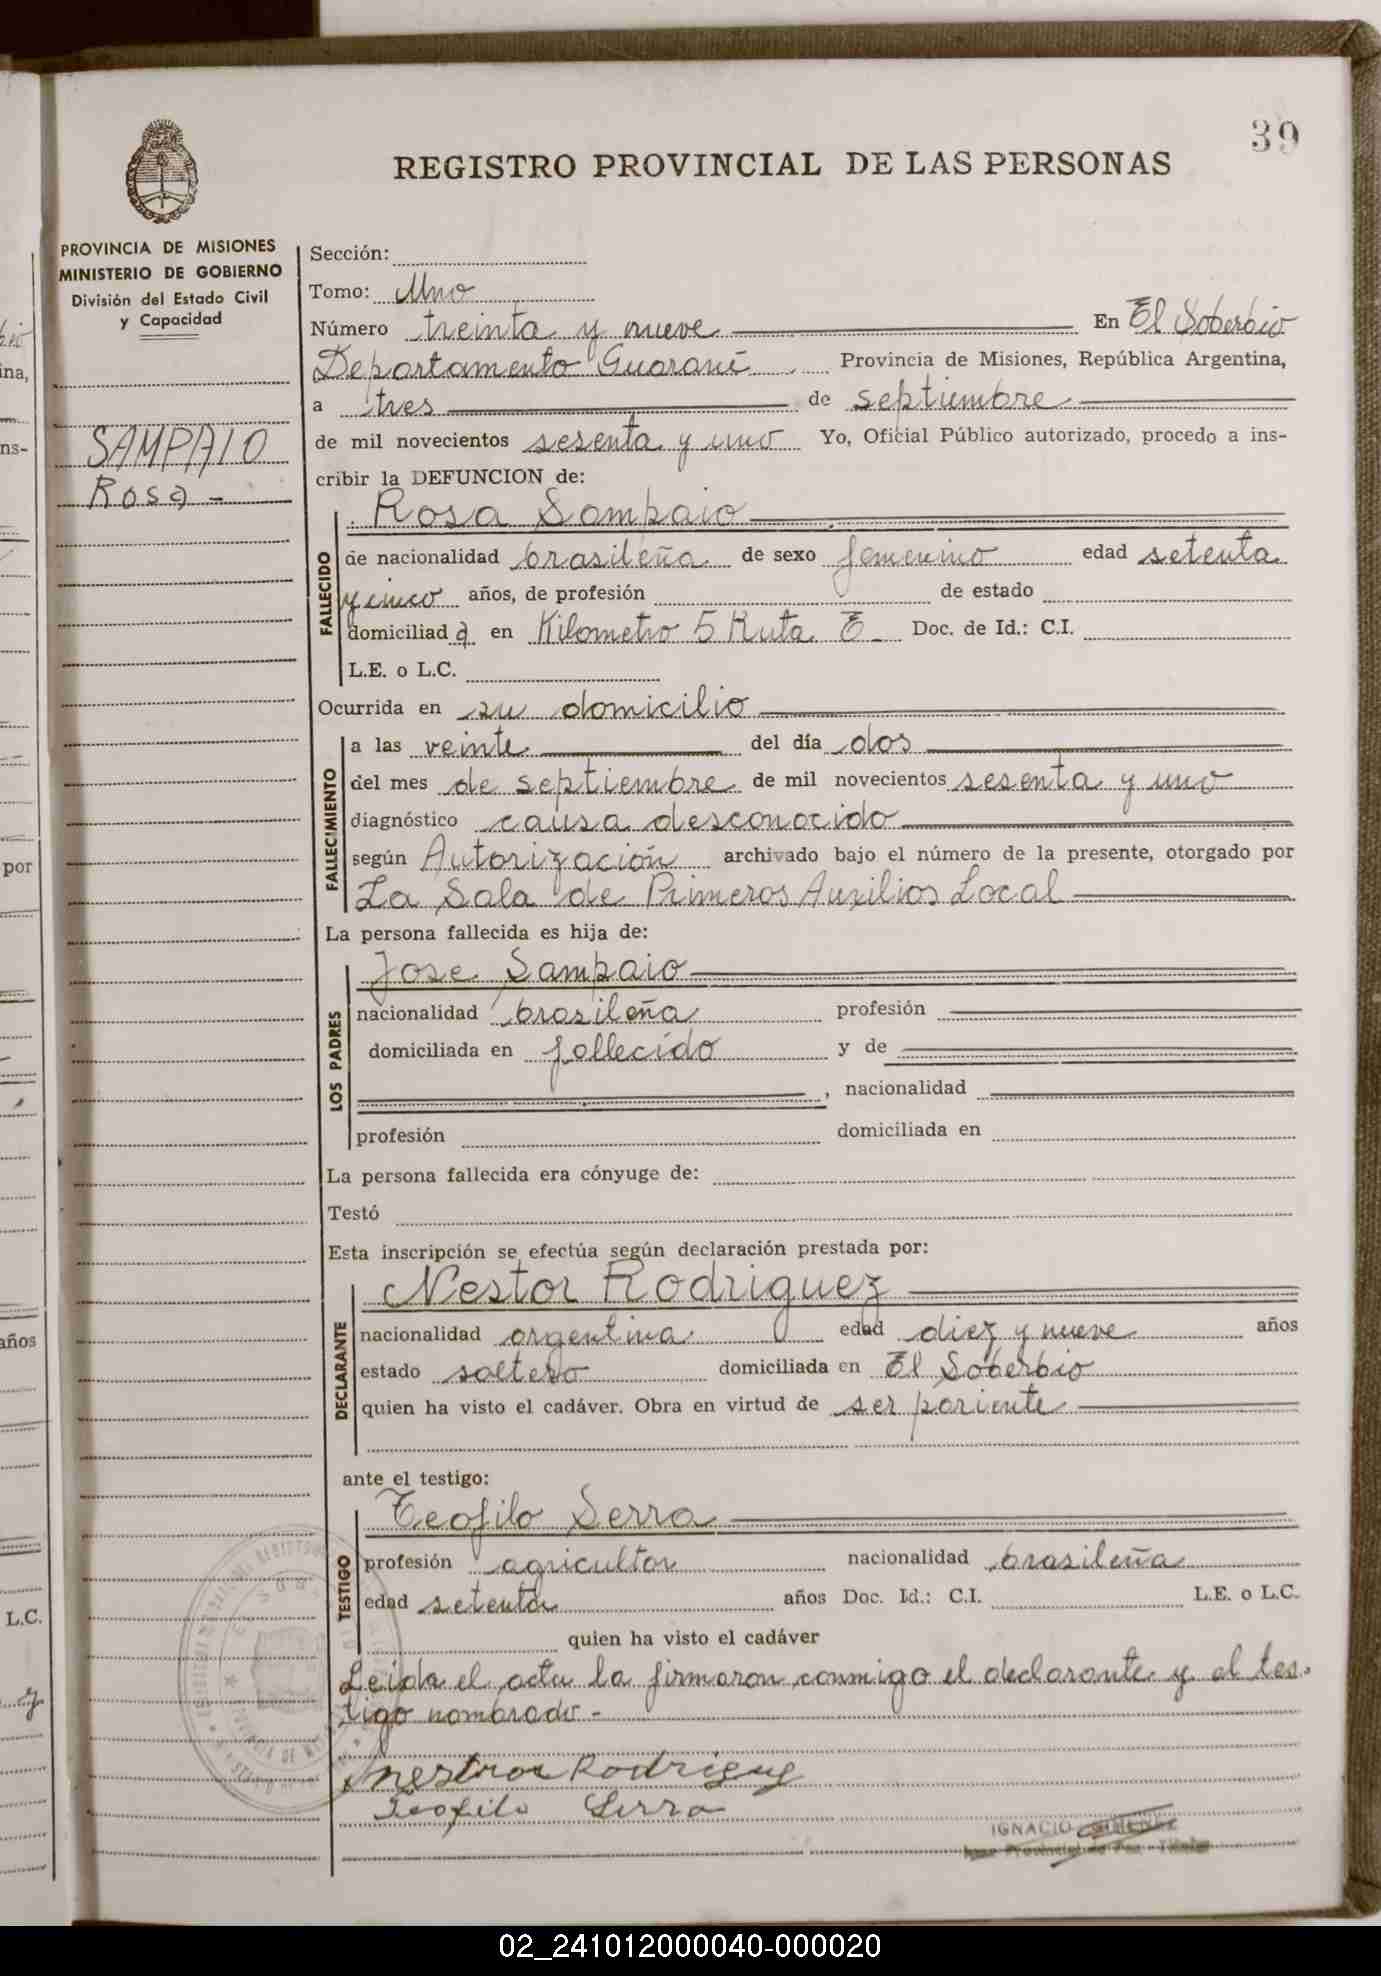 39
REGISTRO PROVINCIAL DE LAS PERSONAS
PROVINCIA DE MISIONES
MINISTERIO DE GOBIERNO
División del Estado Civil
y Capacidad
SAMPAIO
Rosa -
Sección:
Tomo: Uno
Número treinta y nueve En El Soberbio
Departamento Guaraní Provincia de Misiones, República Argentina,
a tres de septiembre
de mil novecientos sesenta y uno Yo, Oficial Público autorizado, procedo a ins-
cribir la DEFUNCION de:
Rosa Sampaio
FALLECIDO
de nacionalidad brasileña de sexo femenino edad setenta
y cinco años, de profesión de estado
domiciliad a en Kilometro 5 Ruta E Doc. de Id.: C.I.
L.E. o L.C.
Ocurrida en su domicilio
FALLECIMIENTO
a las veinte del día dos
del mes de septiembre de mil novecientos sesenta y uno
diagnóstico causa desconocido
según Autorización archivado bajo el número de la presente, otorgado por
La Sala de Primeros Auxilios Local
La persona fallecida es hija de:
LOS PADRES
Jose Sampaio
nacionalidad brasileña profesión
domiciliada en fallecido y de
, nacionalidad
profesión domiciliada en
La persona fallecida era cónyuge de:
Testó
Esta inscripción se efectúa según declaración prestada por:
DECLARANTE
Nestor Rodriguez
nacionalidad argentina edad diez y nueve años
estado soltero domiciliada en El Soberbio
quien ha visto el cadáver. Obra en virtud de ser pariente
ante el testigo:
TESTIGO
Teofilo Serra
profesión agricultor nacionalidad brasileña
edad setenta años Doc. Id.: C.I. L.E. o L.C.
quien ha visto el cadáver
Leida el acta la firmaron conmigo el declarante y el tes-
tigo nombrado -
Teofilo Serra
IGNACIO
ina,
ns-
por
años
L.C.
02_241012000040-000020